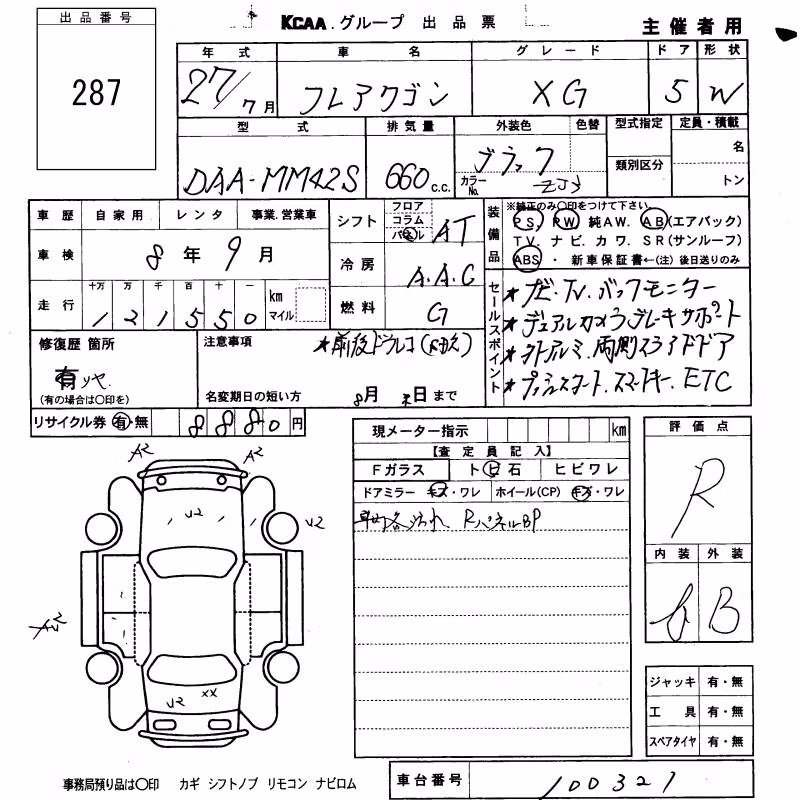 出品番号
287
KCAA.グループ 出品票
主催者用
年式 車名 グレード ドア 形状
27/7月 フレアワゴン XG 5 W
型式 排気量 外装色 色替 型式指定 定員・積載
DAA-MM42S 660 c.c. ブラック
カラーNo. ZJ3
類別区分
名
トン
車歴 自家用 レンタ 事業.営業車
車検 8年9月
走行 十万 万 千 百 十 一
121550 km マイル
シフト フロア コラム パネル AT
冷房 A.A.C
燃料 G
装備品
※純正のみ〇印をつけて下さい
PS. PW 純AW. AB(エアバック)
TV. ナビ. カワ. SR(サンルーフ)
ABS ・ 新車保証書←(注)後日送りのみ
セールスポイント
★ナビ.TV.バックモニター
★デュアルカメラブレーキサポート
★外アルミ.両側スライドドア
★プッシュスタート.スマートキー.ETC
修復歴 箇所
有リヤ
(有の場合は〇印を)
注意事項
★前後ドラレコ
名変期日の短い方 8月 日まで
リサイクル券 有・無 8880円
現メーター指示 km
【査定員記入】
Fガラス ト ビ 石 ヒビワレ
ドアミラー キズ・ワレ ホイール(CP) キズ・ワレ
RパネルBP
評価点
R
内装 外装
B
A2 A2
U2
U2
A2
A2
U2 XX
ジャッキ 有・無
工具 有・無
スペアタイヤ 有・無
事務局預り品は〇印 カギ シフトノブ リモコン ナビロム
車台番号 100321